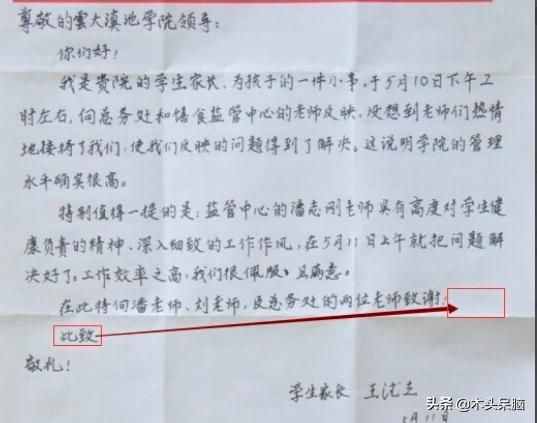 尊敬的雲大滇池学院领导:
你们好!
我是贵院的学生家长,为孩子的一件小事,于5月10日下午工
时左右,向总务处和膳食监管中心的老师反映,没想到老师们热情
地接待了我们,使我们反映的问题得到了解决。这说明学院的管理
水平确实很高。
特别值得一提的是,监管中心的潘志刚老师具有高度对学生健
康负责的精神、深入细致的工作作风,在5月11日上午就把问题解
决好了。工作效率之高,我们很佩服、且满意。
在此特向潘老师、刘老师,及总务处的两位老师致谢.
此致
敬礼!
学生家长 王
5月11日
头条 @木头呆脑